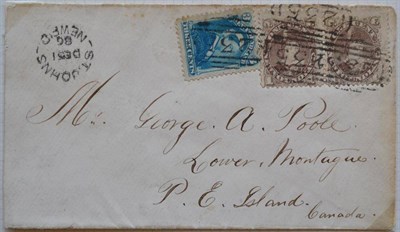 ST. JOHN'S
NEWF'D
DE 31
86
Mr. George. A. Poole.
Lower, Montague.
P. E. Island.
Canada.